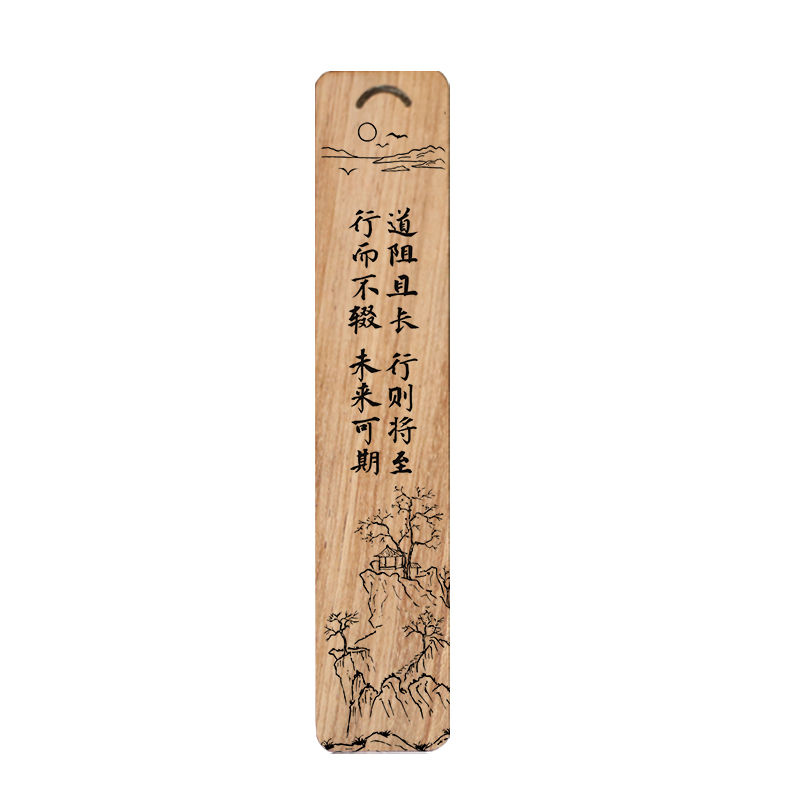 道阻且长 行则将至
行而不辍 未来可期